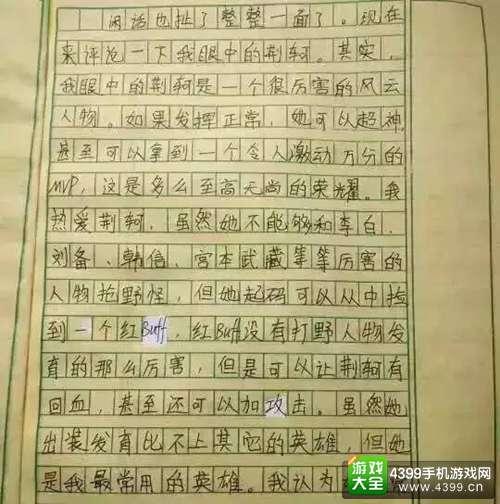 闲话也扯了整整一面了。现在
来评论一下我眼中的荆轲。其实,
我眼中的荆轲是一个很厉害的风云
人物。如果发挥正常,她可以超神,
甚至可以拿到一个令人激动万分的
MVP,这是多么至高无尚的荣耀。我
热爱荆轲,虽然她不能够和李白、
刘备、韩信、宫本武藏等等厉害的
人物抢野怪,但她起码可以从中捡
到一个红Buff,红Buff没有打野人物发
育的那么厉害,但是可以让荆轲有
回血,甚至还可以加攻击。虽然她
出装发育比不上其它的英雄,但她
是我最常用的英雄。我认为
游戏大全
4399手机游戏网
4399SY.COM